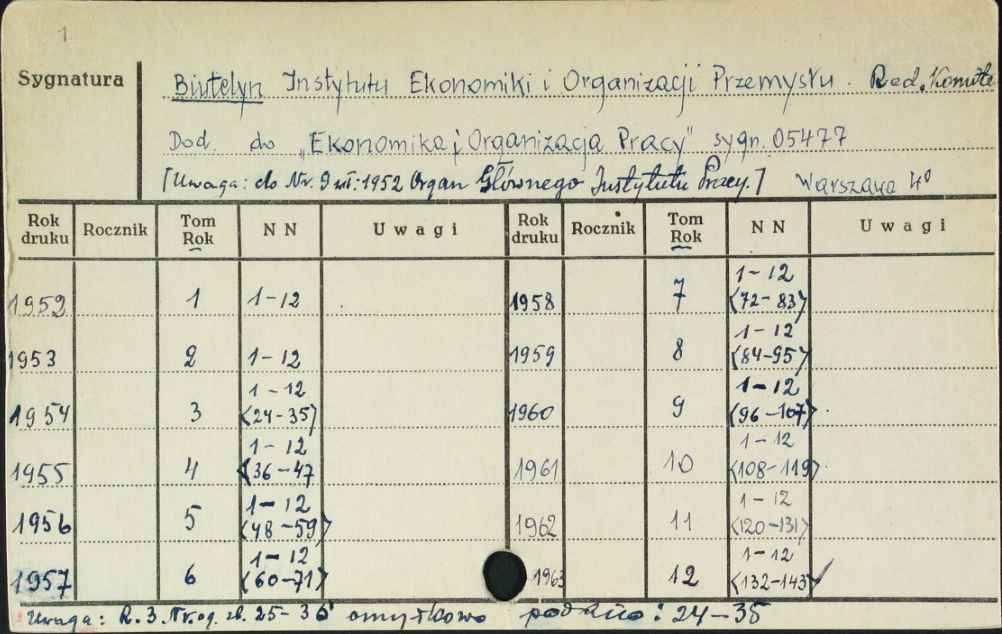 1
Sygnatura
Biuletyn Instytutu Ekonomiki i Organizacji Przemysłu. Red. Komite
Dod. do "Ekonomika i Organizacja Pracy" sygn. 05477
[Uwaga: do Nr. 9 wł: 1952 Organ Głównego Instytutu Pracy.] Warszawa 4°
Rok druku Rocznik Tom Rok NN Uwagi Rok druku Rocznik Tom Rok NN Uwagi
1952 1 1-12 1958 7 1-12 <72-83>
1953 2 1-12 1959 8 1-12 <84-95>
1954 3 1-12 <24-35> 1960 9 1-12 <96-107>
1955 4 1-12 <36-47 1961 10 1-12 <108-119>
1956 5 1-12 <48-59> 1962 11 1-12 <120-131>
1957 6 1-12 <60-71> 1963 12 1-12 <132-143>
Uwaga: R. 3. Nr. og. zb. 25-36 omyłkowo podano: 24-35